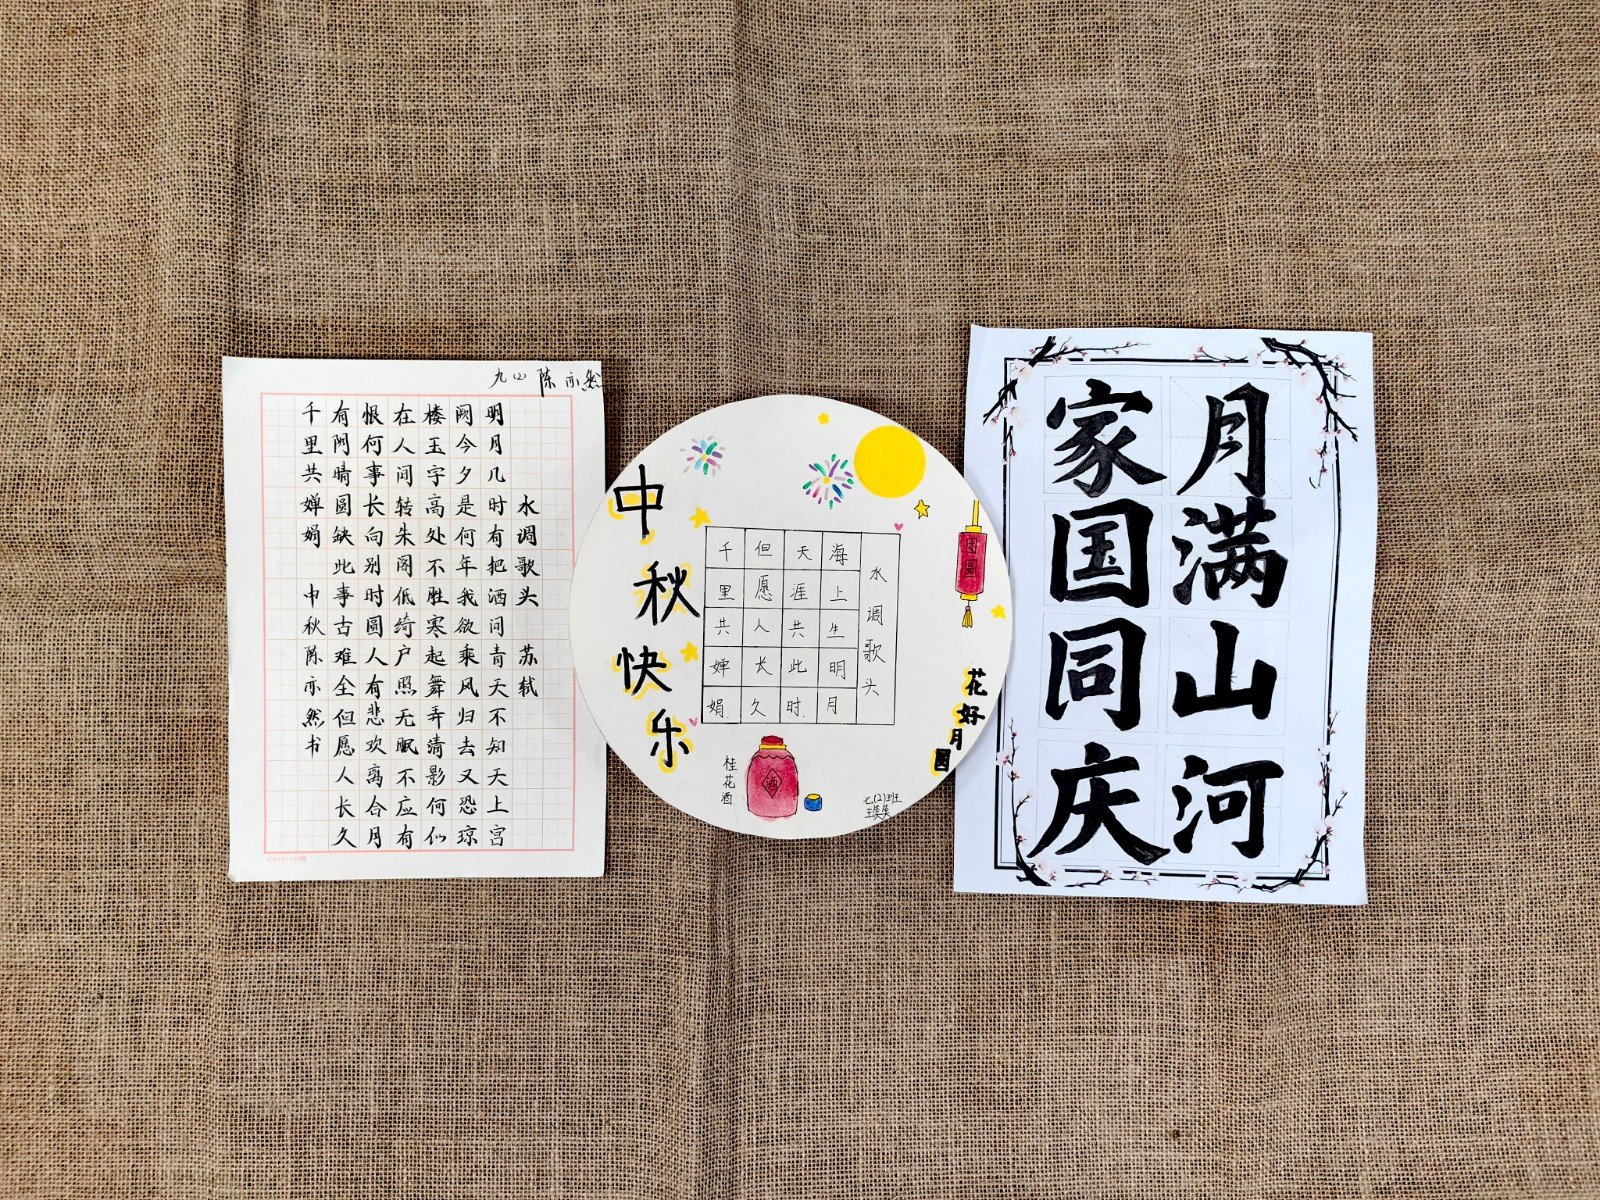 九(2) 陈亦然
水调歌头 苏轼
明月几时有把酒问青天不知天上宫
阙今夕是何年我欲乘风归去又恐琼
楼玉宇高处不胜寒起舞弄清影何似
在人间转朱阁低绮户照无眠不应有
恨何事长向别时圆人有悲欢离合月
有阴晴圆缺此事古难全但愿人长久
千里共婵娟 中秋陈亦然书
中秋快乐
水调歌头
海上生明月
天涯共此时
但愿人长久
千里共婵娟
团圆
花好月圆
桂花酒
酒
七(2)班
月满山河
家国同庆